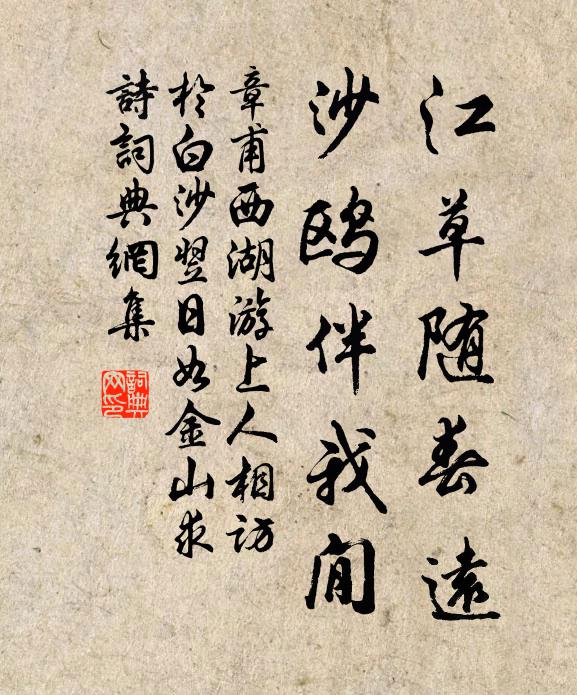 江草随春遠
沙鸥伴我閒
章甫西湖游上人相访
於白沙翌日如金山求
詩詞典網集
詞典网印